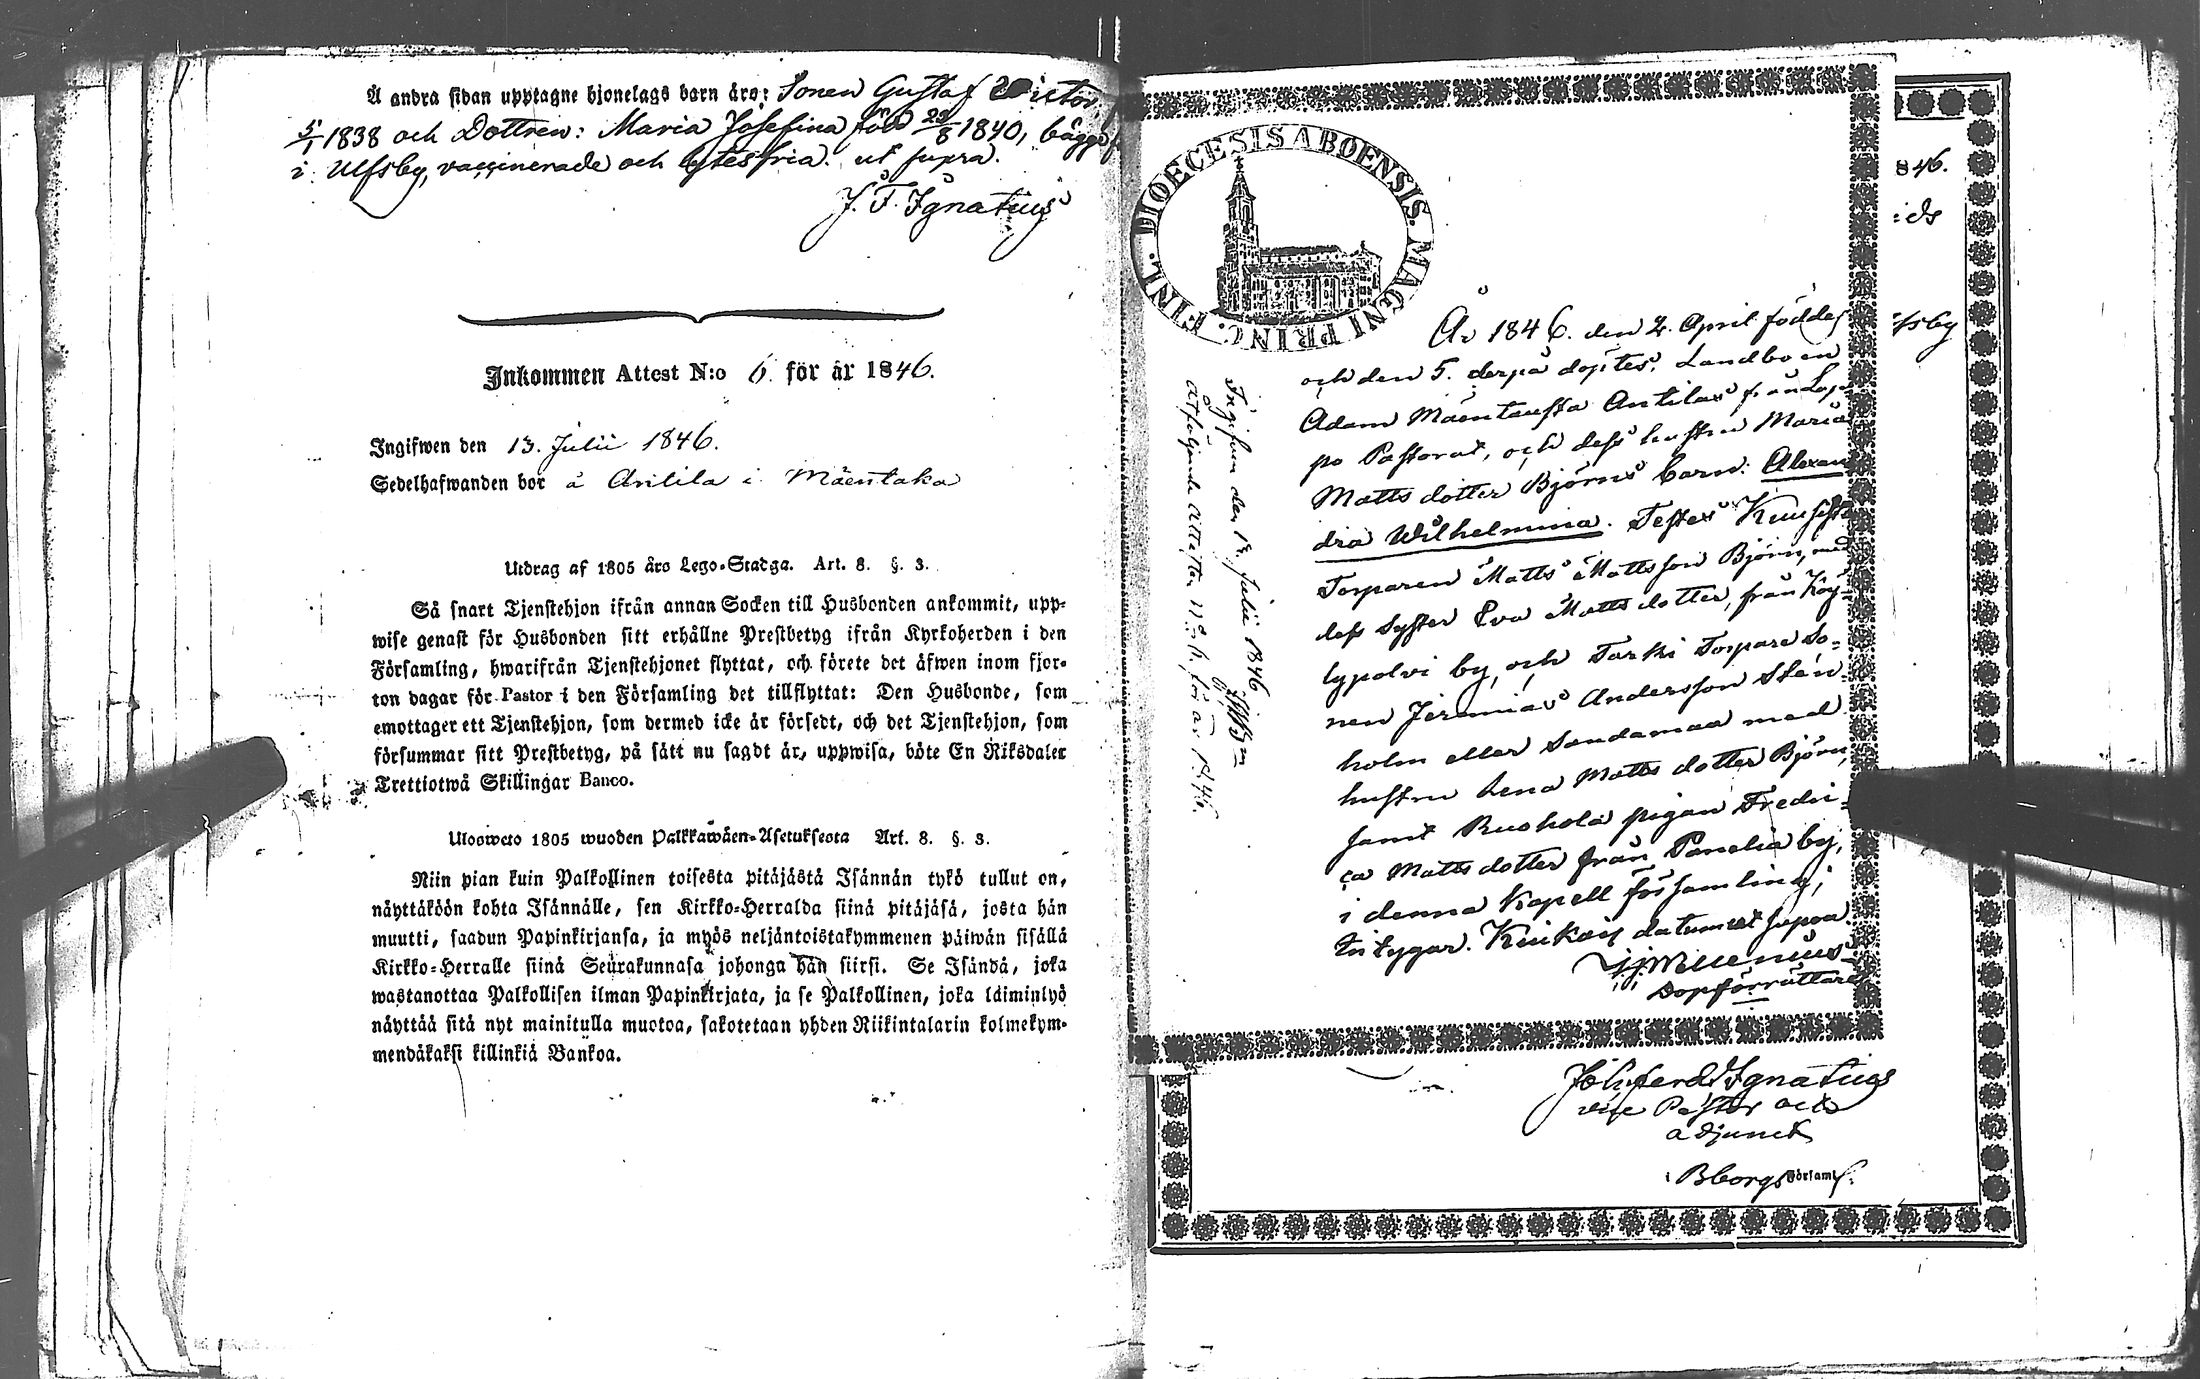 Å andra sidan upptagne hjonelags barn äro: Sonen Gustaf Victor
5/1 1838 och Dottren: Maria Josefina född 29/8 1840, bägge
i Ulfsby, vaccinerade och lytesfria. ut supra.
J. F. Ignatius
Inkommen Attest N:o 6. för år 1846.
Ingifwen den 13. Julii 1846.
Sedelhafwanden bor å Antila i Mäentaka
Utdrag af 1805 års Lego-Stadga. Art. 8. §. 3.
Så snart Tjenstehjon ifrån annan Socken till Husbonden ankommit, upp-
wise genast för Husbonden sitt erhållne Prestbetyg ifrån Kyrkoherden i den
Församling, hwarifrån Tjenstehjonet flyttat, och förete det äfwen inom fjor-
ton dagar för Pastor i den Församling det tillflyttat: Den Husbonde, som
emottager ett Tjenstehjon, som dermed icke är försedt, och det Tjenstehjon, som
försummar sitt Prestbetyg, på sätt nu sagdt är, uppwisa, böte En Riksdaler
Trettiotwå Skillingar Banco.
Ulosweto 1805 wuoden Palkkawäen-Asetuksesta Art. 8. §. 3.
Niin pian kuin Palkollinen toisesta pitäjästä Isännän tykö tullut on,
näyttäköön kohta Isännälle, sen Kirkko-Herralda siinä pitäjäsä, josta hän
muutti, saadun Papinkirjansa, ja myös neljäntoistakymmenen päiwän sisällä
Kirkko-Herralle siinä Seurakunnasa johonga hän siirsi. Se Isändä, joka
wastanottaa Palkollisen ilman Papinkirjata, ja se Palkollinen, joka läiminlyö
näyttää sitä nyt mainitulla muotoa, sakotetaan yhden Riikintalarin kolmekym-
mendäkaksi killinkiä Bankoa.
DIOECESIS ABOENSIS. MAGNI PRINC. FINL.
År 1846. den 2. April föddes
och den 5. derpå döptes, Landboen
Adam Mäentausta Antilas från Lap-
po Pastorat, och dess hustru Maria
Matts dotter Björns barn: Alexan
dra Wilhelmina. Testes Kuusisto
Torparen Matts Mattsson Björn, med
dess syster Eva Matts dotter, från Köy-
lypolvi by, och Torki Torpare So-
nen Jeremias Andersson Sten-
holm eller Sandamaa med
hustru Lena Matts dotter Björn,
samt Ruohola pigan Fredri-
ca Matts dotter från Panelia by,
i denna Kapell församling;
til tygar. Kiukais datum ut supra
J. J. Mellenius
Dopförrättare
Ingifven den 13. Julii 1846
åtföljande attesten N:o 6. för år 1846.
846.
ids
fsby
Joh. Ferd. Ignatius
vice Pastor och
adjunct
i Bborgs Församl.